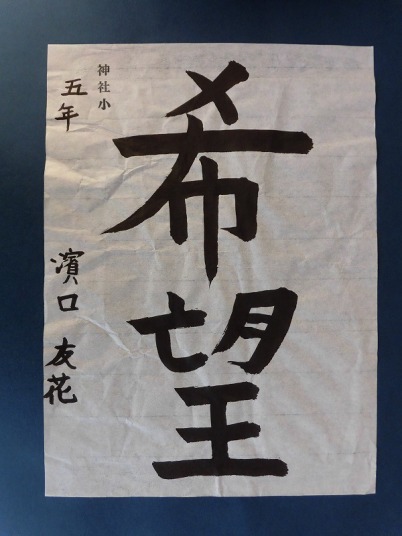 希望
神社小
五年
濱口友花